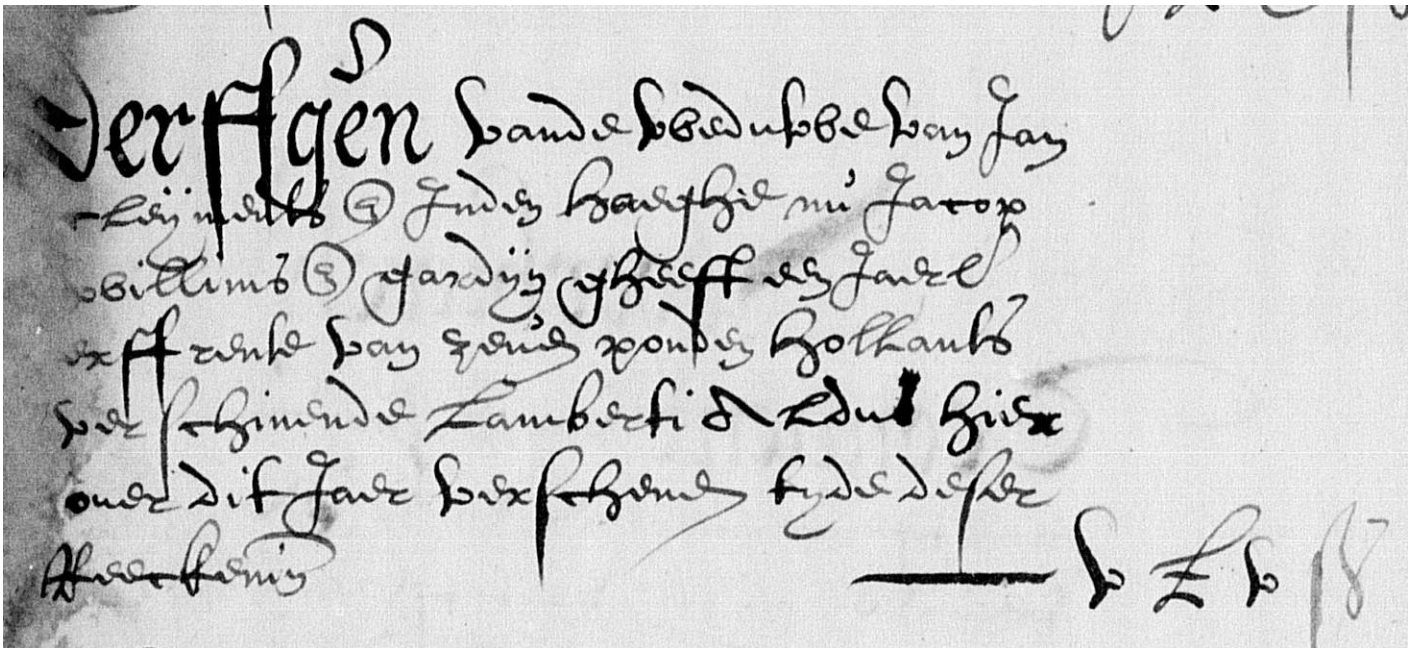 Derffgen vande weduwe van Jan
cleyments @ Inden haeghe nu Jacop
willims @ gardyn gheeft een Jaerl
erffrente van zeven ponden hollants
verschinende Lamberti Aldus hier
over dit Jaer verschenen tyde deser
Reeckenin v £ v ß